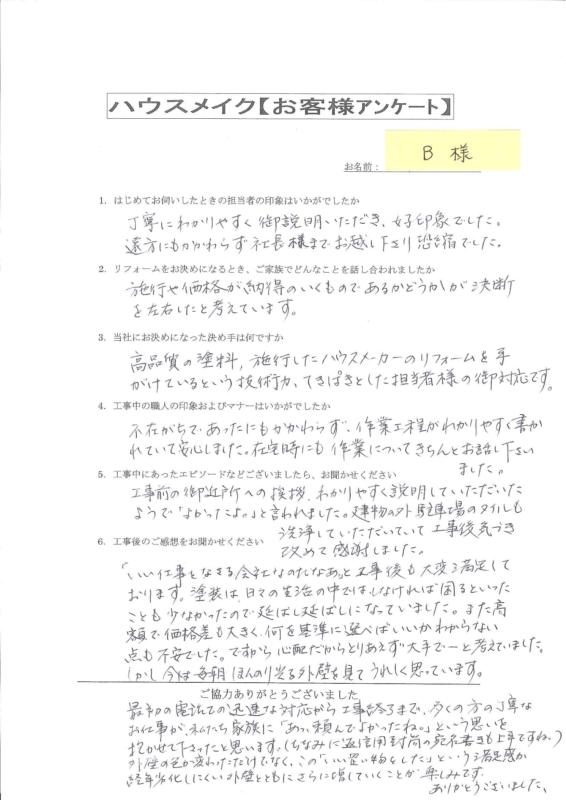 ハウスメイク【お客様アンケート】
お名前：
B 様
1. はじめてお伺いしたときの担当者の印象はいかがでしたか
丁寧にわかりやすく御説明いただき、好印象でした。
遠方にもかかわらず社長様までお越し下さり恐縮でした。
2. リフォームをお決めになるとき、ご家族でどんなことを話し合われましたか
施行や価格が納得のいくものであるかどうかが決断
を左右したと考えています。
3. 当社にお決めになった決め手は何ですか
高品質の塗料、施行したハウスメーカーのリフォームを手
がけているという技術力、てきぱきとした担当者様の御対応です。
4. 工事中の職人の印象およびマナーはいかがでしたか
不在がちであったにもかかわらず、作業工程がわかりやすく書か
れていて安心しました。在宅時にも作業についてきちんとお話し下さい
ました。
5. 工事中にあったエピソードなどございましたら、お聞かせください
工事前の御近所への挨拶、わかりやすく説明していただいた
ようで「よかったよ。」と言われました。建物の外、駐車場のタイルも
洗浄していただいていて工事後気づき
改めて感謝しました。
6. 工事後のご感想をお聞かせください
「いい仕事をなさる会社なのだなあ」と工事後も大変満足して
おります。塗装は日々の生活の中ではしなければ困るといった
ことも少なかったので延ばし延ばしになっていました。また高
額で価格差も大きく、何を基準に選べばいいかわからない
点も不安でした。ですから心配だからとりあえず大手で…と考えていました。
しかし今は毎朝ほんのり光る外壁を見てうれしく思っています。
ご協力ありがとうございました
最初の電話での迅速な対応から工事終了まで、多くの方の丁寧な
お仕事が、私たち家族に「あっ、頼んでよかったね。」という思いを
抱かせて下さったと思います。(ちなみに返信用封筒の宛名書きも上手ですね。)
外壁の色が変わっただけでなく、この「いい買い物をした」という満足感が
経年劣化しにくい外壁とともにさらに増していくことが楽しみです。
ありがとうございました。